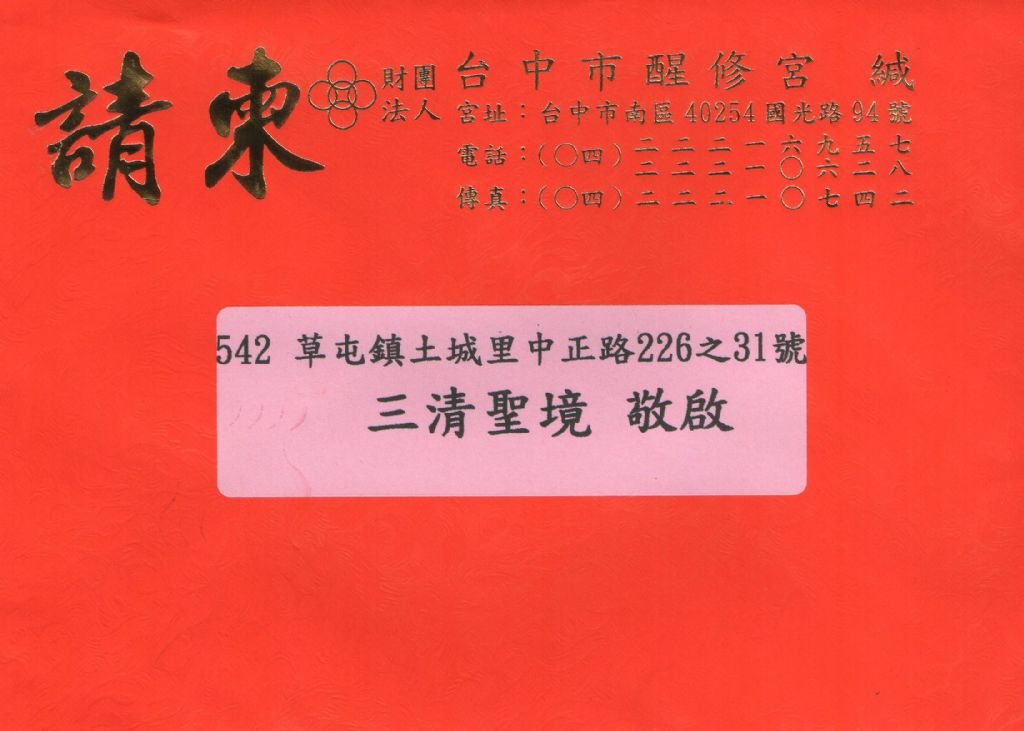 請柬
財團法人 台中市醒修宮 緘
宮址：台中市南區40254國光路94號
電話：（〇四）二二二一六九五七
二二二一〇六二八
傳真：（〇四）二二二一〇七四二
542 草屯鎮土城里中正路226之31號
三清聖境 敬啟